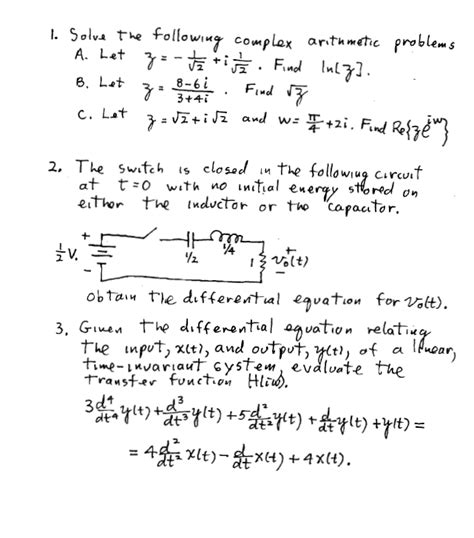 1. Solve the following complex arithmetic problems
A. Let z = - 1/√2 + i 1/√2 . Find ln[z].
B. Let z = 8-6i / 3+4i . Find √z
C. Let z = √2 + i√2 and w = π/4 + 2i. Find Re{z e^{iw}}
2. The switch is closed in the following circuit
at t=0 with no initial energy stored on
either the inductor or the capacitor.
+ 1/2 V. - 1/2 1/4 1 + v₀(t) -
obtain the differential equation for v₀(t).
3. Given the differential equation relating
the input, x(t), and output, y(t), of a linear,
time-invariant system, evaluate the
transfer function H(iω).
3 d⁴/dt⁴ y(t) + d³/dt³ y(t) + 5 d²/dt² y(t) + d/dt y(t) + y(t) =
= 4 d²/dt² x(t) - d/dt x(t) + 4x(t).